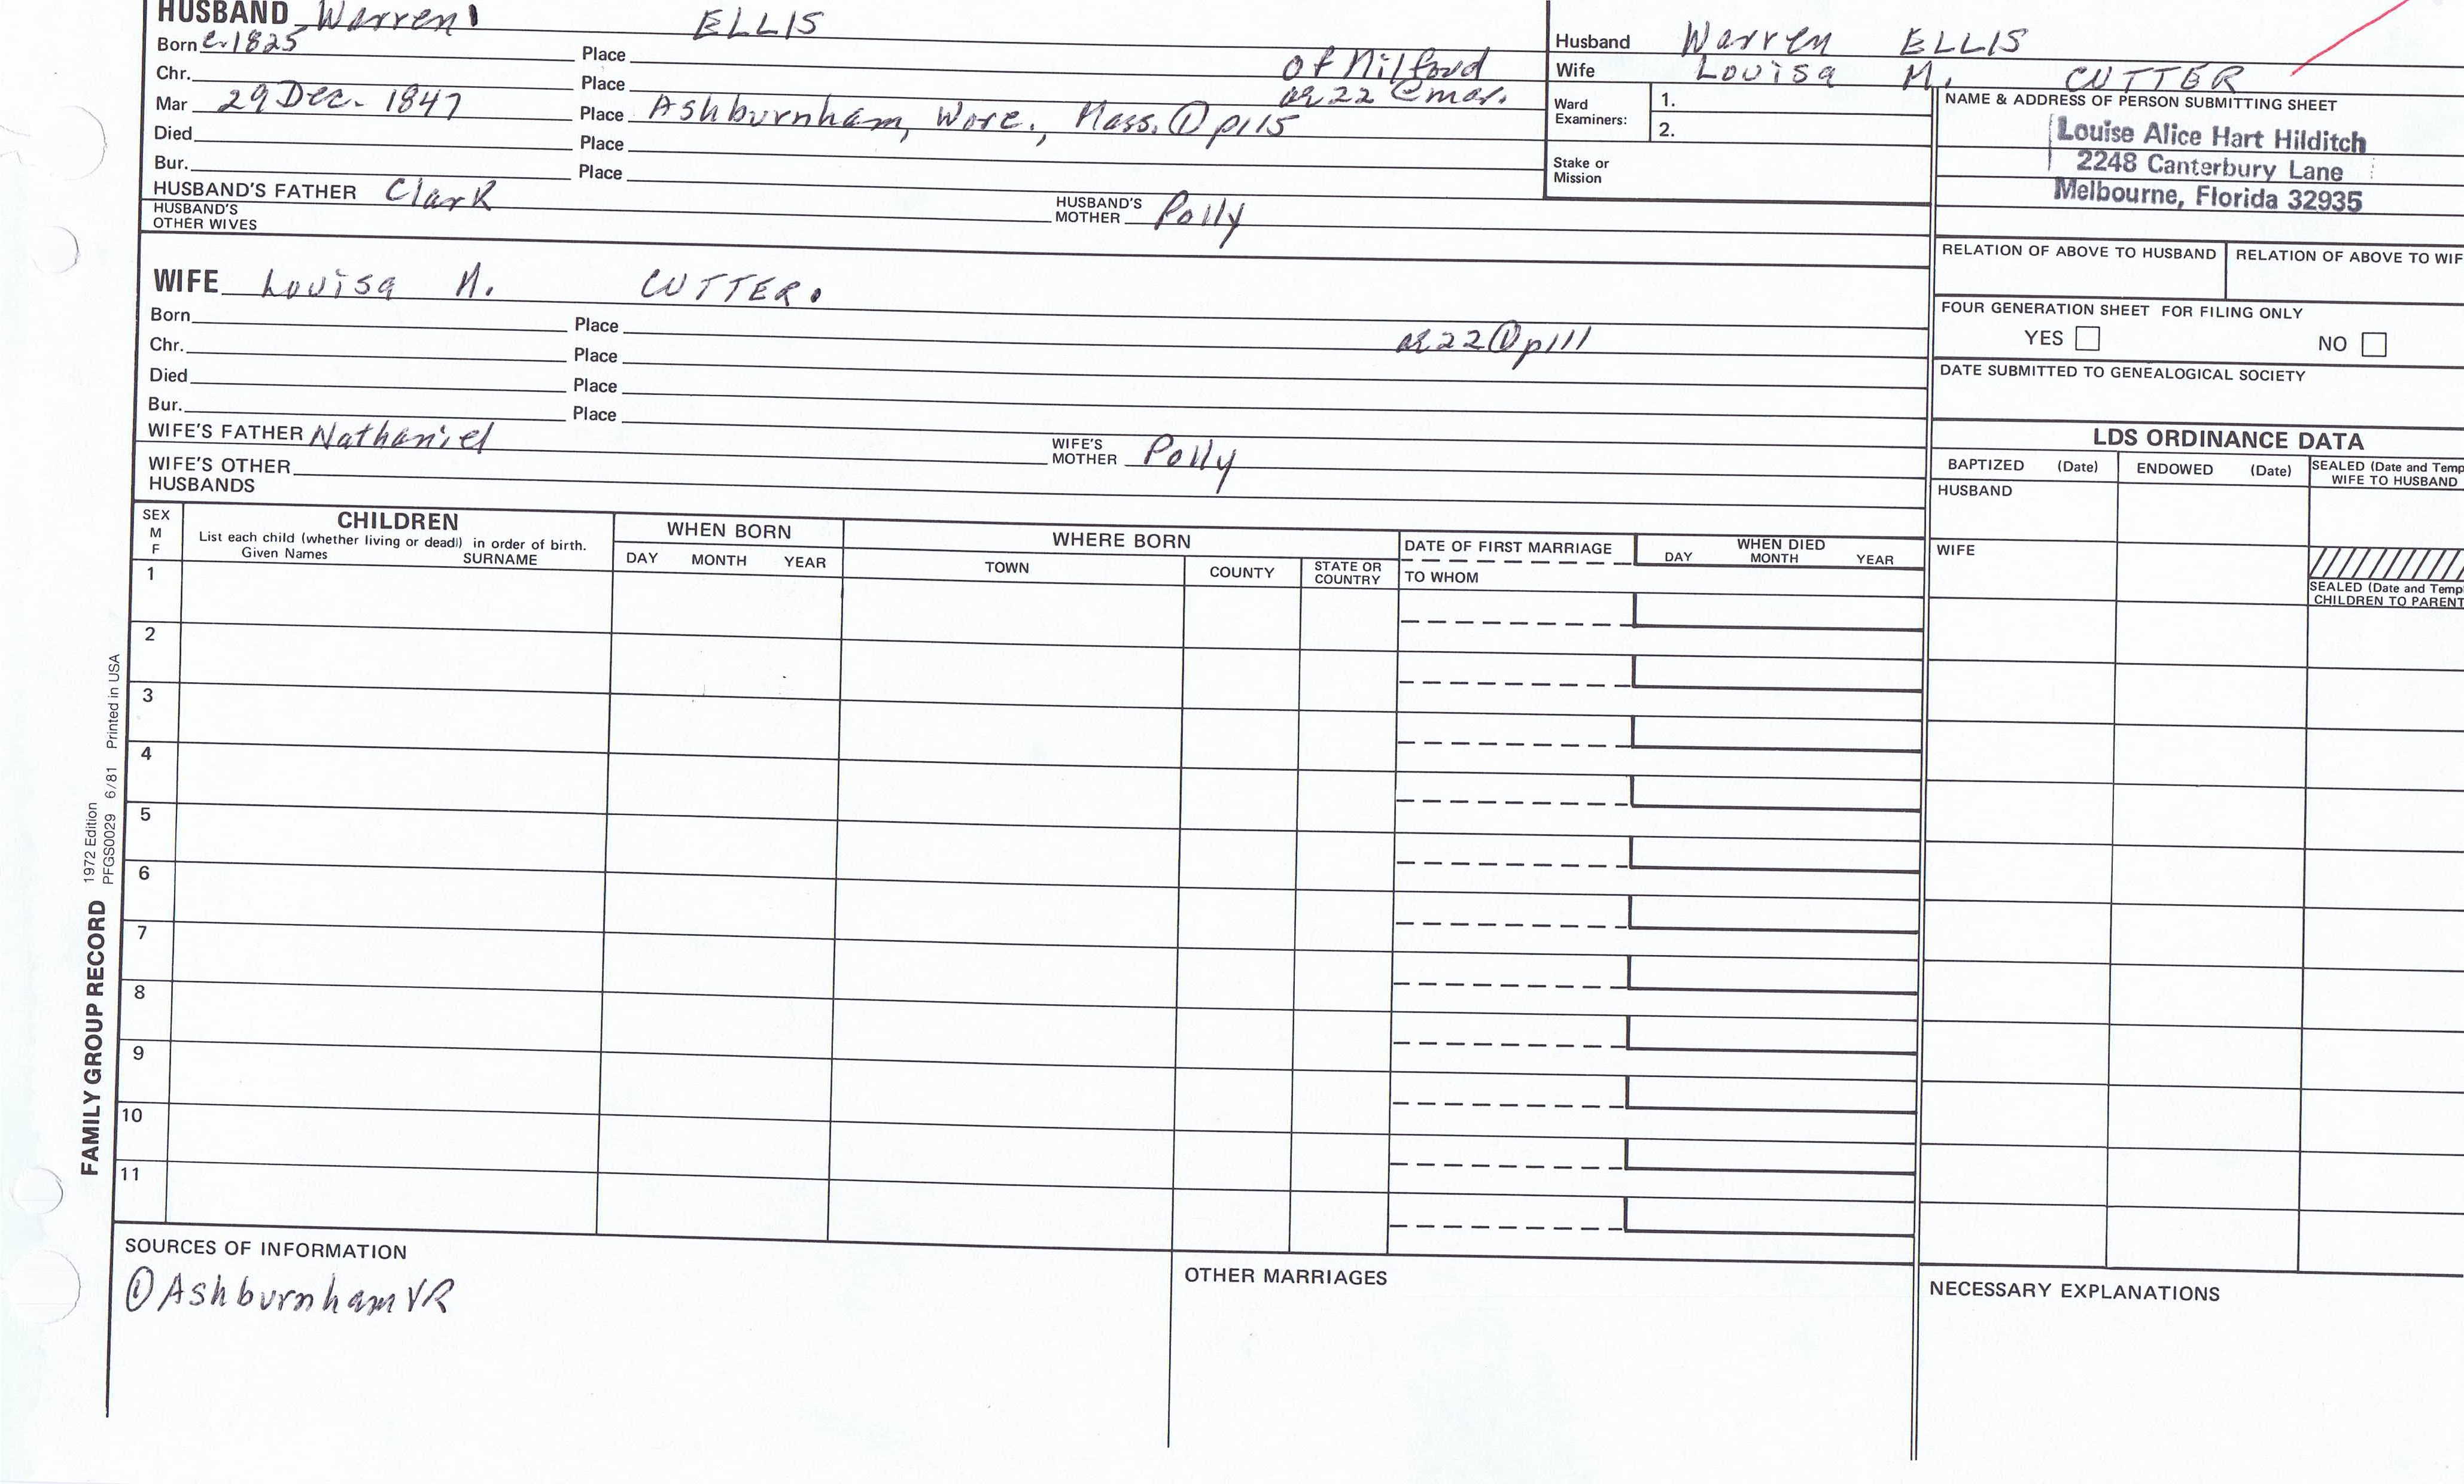 HUSBAND Warren ELLIS
Born c.1825 Place of Milford
Chr. Place ae 22 @ mar.
Mar 29 Dec. 1847 Place Ashburnham, Worc., Mass. ① p115
Died Place
Bur. Place
HUSBAND'S FATHER Clark HUSBAND'S MOTHER Polly
HUSBAND'S OTHER WIVES
Husband Warren ELLIS
Wife Louisa M. CUTTER
Ward Examiners: 1.
2.
Stake or Mission
NAME & ADDRESS OF PERSON SUBMITTING SHEET
Louise Alice Hart Hilditch
2248 Canterbury Lane
Melbourne, Florida 32935
RELATION OF ABOVE TO HUSBAND RELATION OF ABOVE TO WIF
FOUR GENERATION SHEET FOR FILING ONLY
YES NO
DATE SUBMITTED TO GENEALOGICAL SOCIETY
WIFE Louisa M. CUTTER.
Born Place ae 22 ① p111
Chr. Place
Died Place
Bur. Place
WIFE'S FATHER Nathaniel WIFE'S MOTHER Polly
WIFE'S OTHER HUSBANDS
LDS ORDINANCE DATA
BAPTIZED (Date) ENDOWED (Date) SEALED (Date and Temp
WIFE TO HUSBAND
HUSBAND
WIFE
SEALED (Date and Temp
CHILDREN TO PARENT
SEX M F
CHILDREN
List each child (whether living or dead) in order of birth.
Given Names SURNAME
WHEN BORN
DAY MONTH YEAR
WHERE BORN
TOWN COUNTY STATE OR COUNTRY
DATE OF FIRST MARRIAGE
TO WHOM
WHEN DIED
DAY MONTH YEAR
1
2
3
4
5
6
7
8
9
10
11
FAMILY GROUP RECORD 1972 Edition
PFGS0029 6/81 Printed in USA
SOURCES OF INFORMATION
① Ashburnham VR
OTHER MARRIAGES
NECESSARY EXPLANATIONS